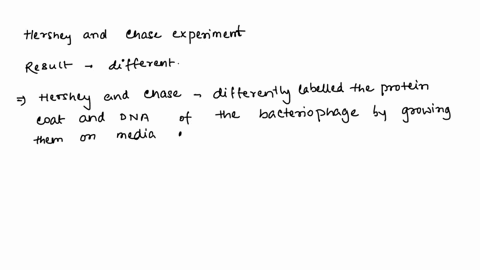 Hershey and chase experiment
Result → different.
⇒ Hershey and chase → differently labelled the protein
coat and DNA of the bacteriophage by growing
them on media